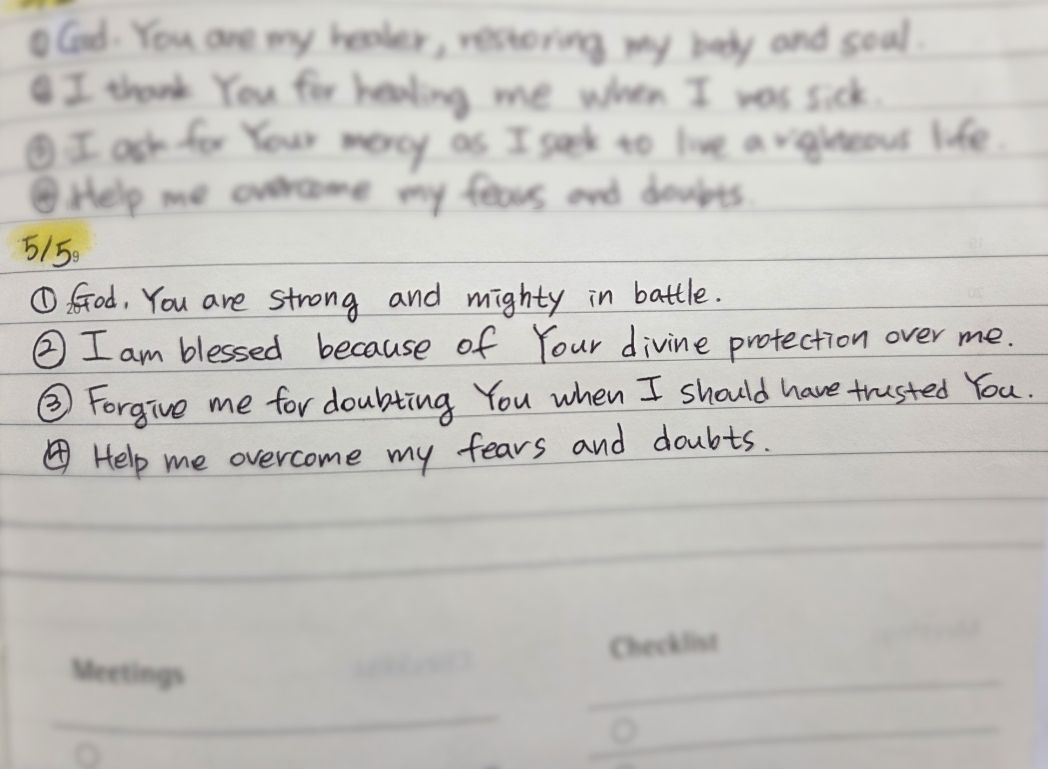 ① God. You are my healer, restoring my body and soul.
② I thank You for healing me when I was sick.
③ I ask for Your mercy as I seek to live a righteous life.
④ Help me overcome my fears and doubts.
5/5
① God. You are strong and mighty in battle.
② I am blessed because of Your divine protection over me.
③ Forgive me for doubting You when I should have trusted You.
④ Help me overcome my fears and doubts.
Meetings
Checklist